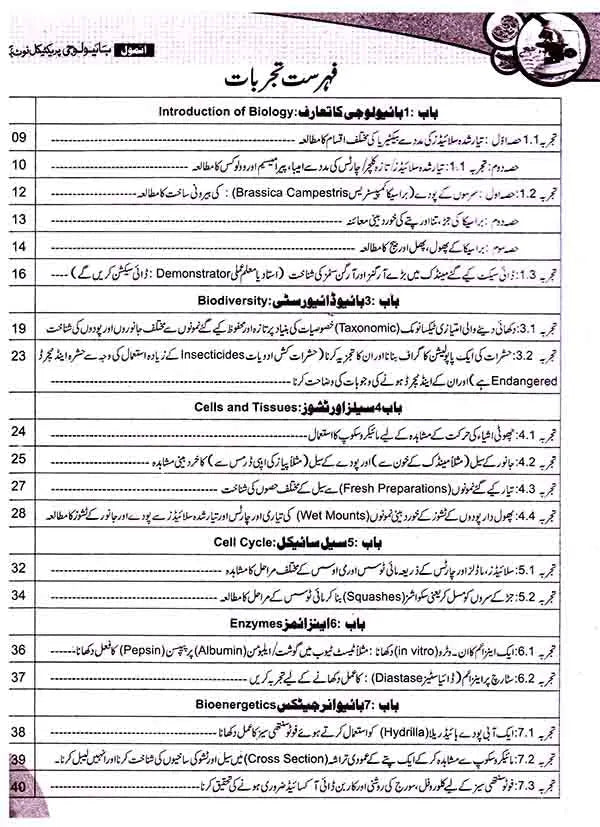 انمول بائیولوجی پریکٹیکل نوٹ بک
فہرست تجربات
باب :1بائیولوجی کا تعارف:Introduction of Biology
تجربہ 1.1 حصہ اوّل : تیار شدہ سلائیڈز کی مدد سے بیکٹیریا کی مختلف اقسام کا مطالعہ 09
حصہ دوم: تجربہ 1.1 : تیار شدہ سلائیڈز/تازہ کلچر/چارٹس کی مدد سے امیبا، پیرامیشیم اور وولوکس کا مطالعہ 10
تجربہ 1.2 : حصہ اول : سرسوں کے پودے (براسیکا کمپسٹریس Brassica Campestris) : کی بیرونی ساخت کا مطالعہ 12
حصہ دوم : براسیکا کی جڑ، تنا اور پتے کی خوردبینی معائنہ 13
حصہ سوم : براسیکا کے پھول، پھل اور بیج کا مطالعہ 14
تجربہ 1.3 : ڈائی سیکٹ کیے گئے مینڈک میں بڑے آرگنز اور آرگن سسٹمز کی شناخت (استاد یا معلم عملی Demonstrator : ڈائی سیکشن کریں گے) 16
باب :3بائیوڈائیورسٹی:Biodiversity
تجربہ 3.1: دکھائی دینے والی امتیازی ٹیکسانومک (Taxonomic) خصوصیات کی بنیاد پر تازہ اور محفوظ کیے گئے نمونوں سے مختلف جانوروں اور پودوں کی شناخت 19
تجربہ 3.2: حشرات کی ایک پاپولیشن کا گراف بنانا اور ان کا تجزیہ کرنا (حشرات کش ادویات Insecticides کے زیادہ استعمال کی وجہ سے حشرہ اینڈینجرڈ 23
Endangered ہے) اور ان کے اینڈینجرڈ ہونے کی وجوہات کی وضاحت کرنا
باب 4سیلز اور ٹشوز:Cells and Tissues
تجربہ 4.1: چھوٹی اشیاء کی حرکت کے مشاہدہ کے لیے مائیکروسکوپ کا استعمال 24
تجربہ 4.2: جانور کے سیل (مثلاً مینڈک کے خون سے) اور پودے کے سیل (مثلاً پیاز کی اپی ڈرمس سے) کا خردبینی مشاہدہ 25
تجربہ 4.3: تیار کیے گئے نمونوں (Fresh Preparations) سے سیل کے مختلف حصوں کی شناخت 27
تجربہ 4.4: پھول دار پودوں کے ٹشوز کے خوردبینی نمونوں (Wet Mounts) کی تیاری اور چارٹس اور تیار شدہ سلائیڈز سے پودے اور جانور کے ٹشوز کا مطالعہ 28
باب :5سیل سائیکل:Cell Cycle
تجربہ 5.1: سلائیڈز، ماڈلز اور چارٹس کے ذریعہ مائی ٹوسس اور می اوسس کے مختلف مراحل کا مشاہدہ 32
تجربہ 5.2: جڑ کے سروں کو مسل کر یعنی سکواشز (Squashes) بنا کر مائی ٹوسس کے مراحل کا مطالعہ 34
باب :6اینزائمز Enzymes
تجربہ 6.1: ایک اینزائم کا ان۔ وٹرو (in vitro) دکھانا : مثلاً ٹیسٹ ٹیوب میں گوشت/ایلبومن (Albumin) پر پیپسن (Pepsin) کا فعل دکھانا 36
تجربہ 6.2: سٹارچ پر اینزائم (ڈایاسٹیز Diastase) : کا عمل دکھانے کے لیے تجربہ کریں 37
باب :7بائیو انرجیٹکس Bioenergetics
تجربہ 7.1: ایک آبی پودے ہائیڈریلا (Hydrilla) کو استعمال کرتے ہوئے فوٹوسنتھی سیز کا عمل دکھانا 38
تجربہ 7.2: مائیکروسکوپ سے مشاہدہ کر کے ایک پتے کے عمودی تراشہ (Cross Section) میں سیل اور ٹشو کی ساختوں کی شناخت کرنا اور انہیں لیبل کرنا 39
تجربہ 7.3: فوٹوسنتھی سیز کے لیے کلوروفل، سورج کی روشنی اور کاربن ڈائی آکسائیڈ ضروری ہونے کی تحقیق کرنا 40